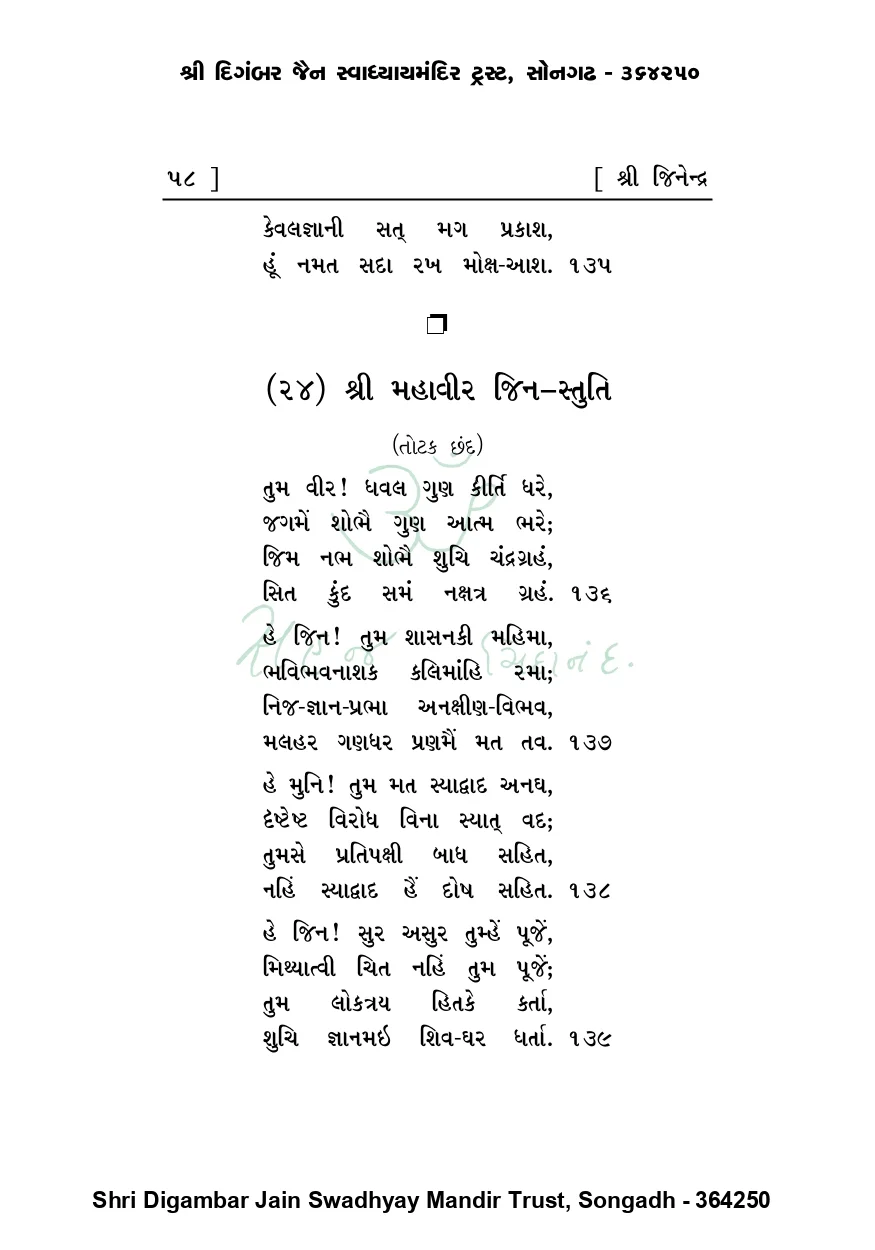 શ્રી દિગંબર જૈન સ્વાધ્યાયમંદિર ટ્રસ્ટ, સોનગઢ - ૩૬૪૨૫૦
૫૮ ] [ શ્રી જિનેન્દ્ર
કેવલજ્ઞાની સત્ મગ પ્રકાશ,
હૂં નમત સદા રખ મોક્ષ-આશ. ૧૩૫
❒
(૨૪) શ્રી મહાવીર જિન–સ્તુતિ
(તોટક છંદ)
તુમ વીર! ધવલ ગુણ કીર્તિ ધરે,
જગમેં શોભૈ ગુણ આત્મ ભરે;
જિમ નભ શોભૈ શુચિ ચંદ્રગ્રહં,
સિત કુંદ સમં નક્ષત્ર ગ્રહં. ૧૩૬
હે જિન! તુમ શાસનકી મહિમા,
ભવિભવનાશક કલિમાંહિ રમા;
નિજ-જ્ઞાન-પ્રભા અનક્ષીણ-વિભવ,
મલહર ગણધર પ્રણમૈં મત તવ. ૧૩૭
હે મુનિ! તુમ મત સ્યાદ્વાદ અનઘ,
દૃષ્ટેષ્ટ વિરોધ વિના સ્યાત્ વદ;
તુમસે પ્રતિપક્ષી બાધ સહિત,
નહિં સ્યાદ્વાદ હૈં દોષ સહિત. ૧૩૮
હે જિન! સુર અસુર તુમ્હેં પૂજેં,
મિથ્યાત્વી ચિત નહિં તુમ પૂજેં;
તુમ લોકત્રય હિતકે કર્તા,
શુચિ જ્ઞાનમઇ શિવ-ઘર ધર્તા. ૧૩૯
ૐ
સહજ ચિદાનંદ.
Shri Digambar Jain Swadhyay Mandir Trust, Songadh - 364250